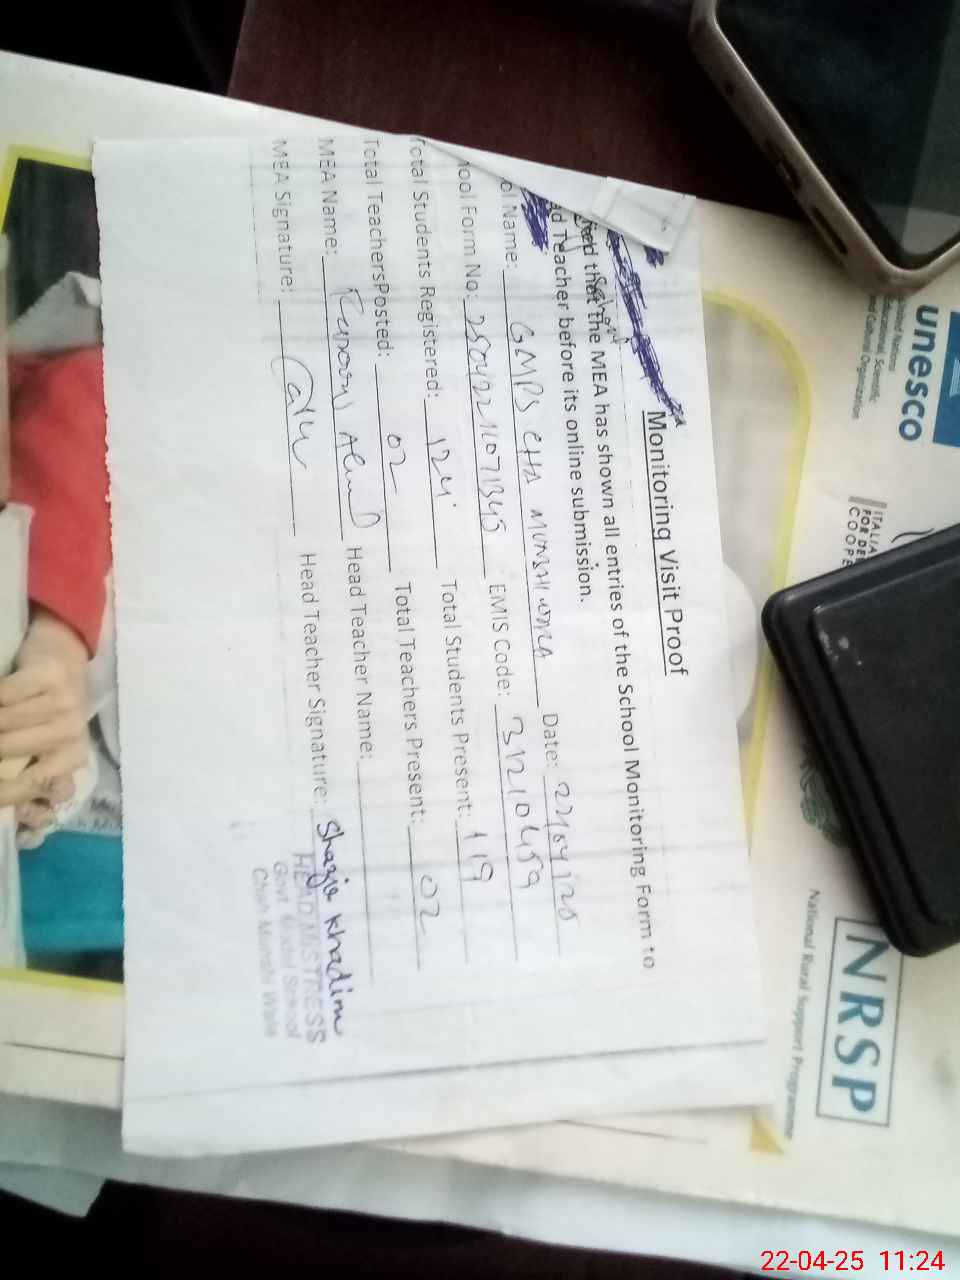 Monitoring Visit Proof
that the MEA has shown all entries of the School Monitoring Form to
ad Teacher before its online submission.
ol Name: GMPS CHA MUNSHI WALA Date: 22/04/25
ool Form No: EMIS Code: 31210459
Total Students Registered: 124 Total Students Present: 119
Total TeachersPosted: 02 Total Teachers Present: 02
MEA Name: Head Teacher Name:
MEA Signature: Head Teacher Signature: Shazia Khadim
HEADMISTRESS
Govt. Model School
Chah Munshi Wala
unesco
United Nations
Educational, Scientific
and Cultural Organization
ITALIA
FOR DE
COOPE
NRSP
National Rural Support Programme
22-04-25 11:24